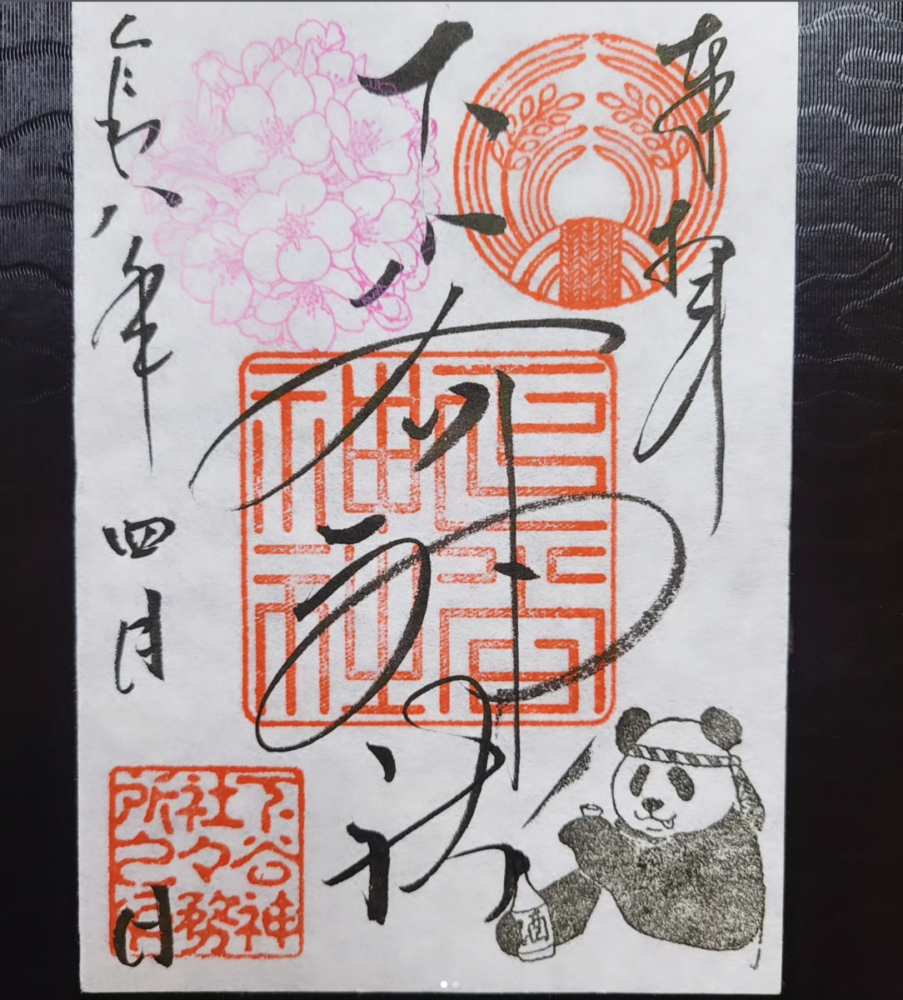 奉拝
下谷神社
令和八年四月 日
下谷神社
下谷神社々務所之印
酒